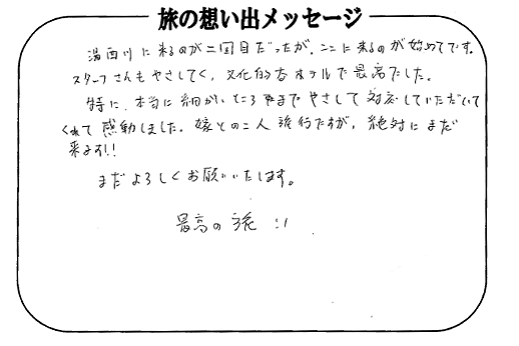 旅の想い出メッセージ
湯西川に来るのが二回目だったが、ここに来るのが始めてです。
スタッフさんもやさしくて、文化的なホテルで最高でした。
特に、本当に細かいところまでやさしく対応していただいて
くれて感動しました。嫁との二人旅行ですが、絶対にまだ
来ます!!
まだよろしくお願いいたします。
最高の旅 :)